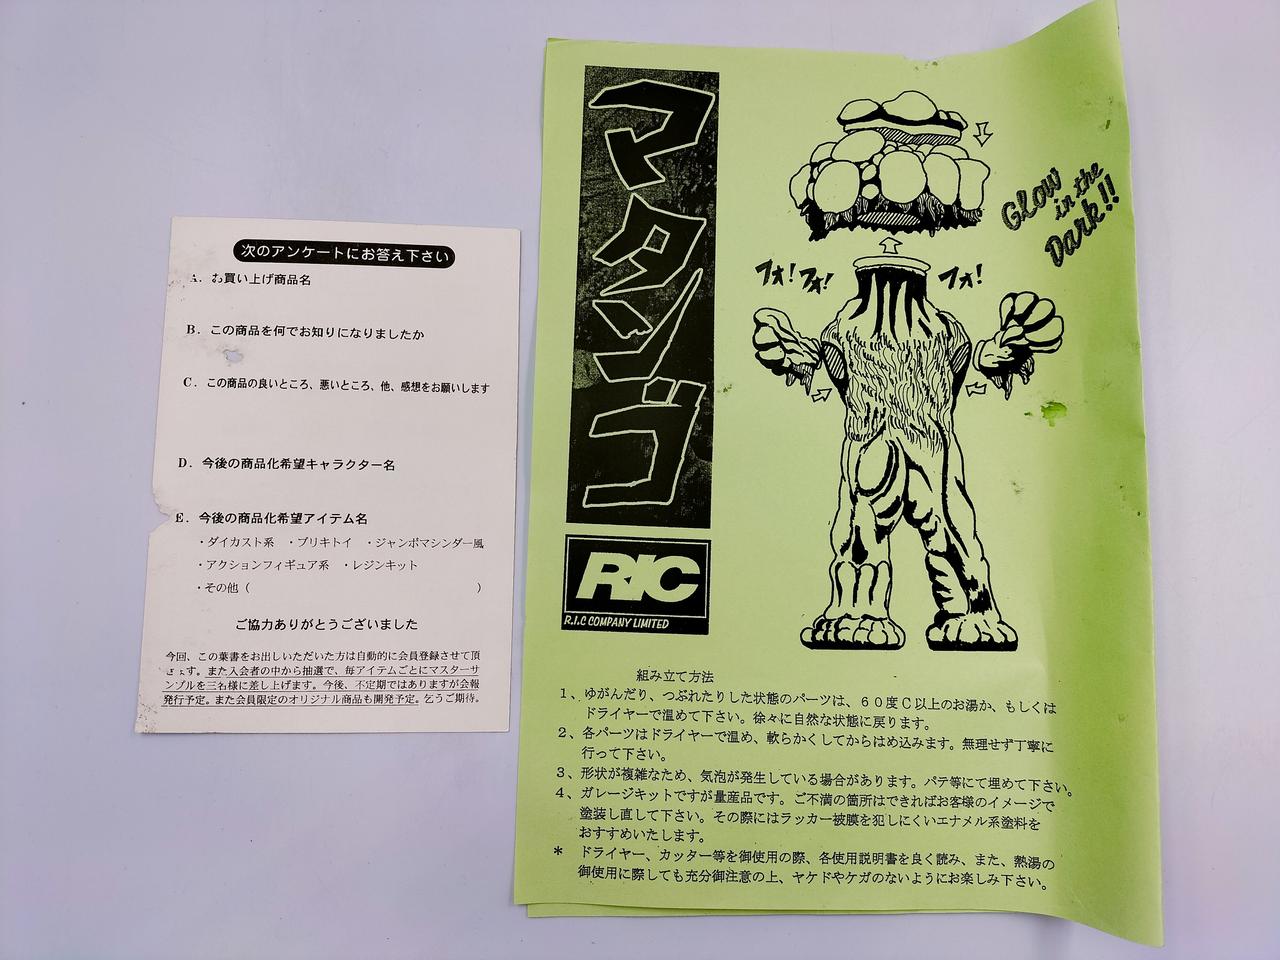 次のアンケートにお答え下さい
A．お買い上げ商品名
B．この商品を何でお知りになりましたか
C．この商品の良いところ、悪いところ、他、感想をお願いします
D．今後の商品化希望キャラクター名
E．今後の商品化希望アイテム名
・ダイカスト系　・ブリキトイ　・ジャンボマシンダー風
・アクションフィギュア系　・レジンキット
・その他（　　　　　　　　　　　　　　）
ご協力ありがとうございました
今回、この葉書をお出しいただいた方は自動的に会員登録させて頂
きます。また入会者の中から抽選で、毎アイテムごとにマスターサ
ンプルを三名様に差し上げます。今後、不定期ではありますが会報
発行予定。また会員限定のオリジナル商品も開発予定。乞うご期待。
マタンゴ
RIC
R.I.C COMPANY LIMITED
Glow
in the
Dark!!
フォ！フォ！
フォ！
組み立て方法
1、ゆがんだり、つぶれたりした状態のパーツは、６０度Ｃ以上のお湯か、もしくは
ドライヤーで温めて下さい。徐々に自然な状態に戻ります。
2、各パーツはドライヤーで温め、軟らかくしてからはめ込みます。無理せず丁寧に
行って下さい。
3、形状が複雑なため、気泡が発生している場合があります。パテ等にて埋めて下さい。
4、ガレージキットですが量産品です。ご不満の箇所はできればお客様のイメージで
塗装し直して下さい。その際にはラッカー被膜を犯しにくいエナメル系塗料を
おすすめいたします。
＊　ドライヤー、カッター等を御使用の際、各使用説明書を良く読み、また、熱湯の
御使用に際しても充分御注意の上、ヤケドやケガのないようにお楽しみ下さい。